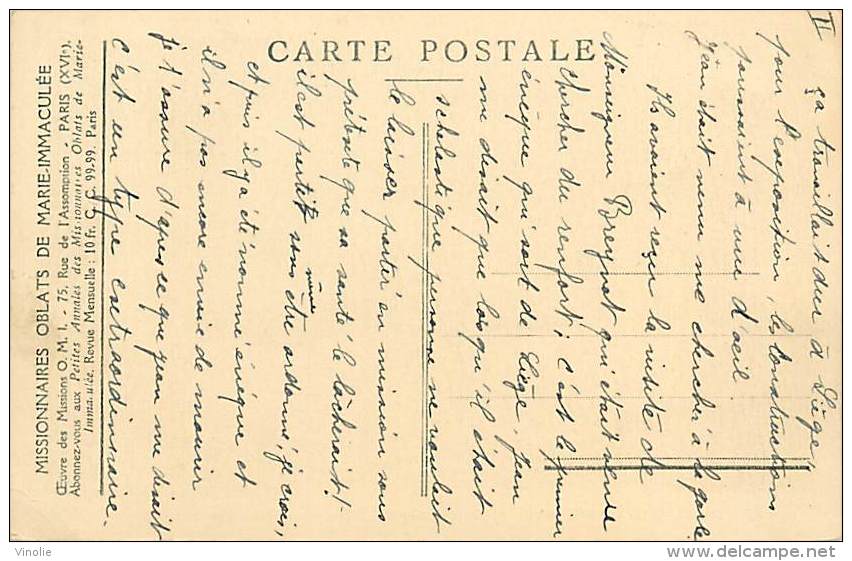 II
ça travaillait dur à Liège,
pour l'exposition, les constructions
poussaient à vue d'œil
Jean était venu me chercher à la gare.
Ils avaient reçu la visite de
Monseigneur Breynat qui était venu
chercher du renfort; c'est le premier
évêque qui sort de Liège. Jean
me disait que lorsqu'il était
scholastique personne ne voulait
le laisser partir en mission sous
prétexte que sa santé le lâcherait!
il est parti sans même être ordonné, je crois,
et puis il y a été nommé évêque et
il n'a pas encore envie de mourir
je t'assure d'après ce que Jean me disait
c'est un type extraordinaire.
CARTE POSTALE
MISSIONNAIRES OBLATS DE MARIE-IMMACULÉE
Œuvre des Missions O. M. I. - 75, Rue de l'Assomption - PARIS (XVIe).
Abonnez-vous aux Petites Annales des Missionnaires Oblats de Marie-
Immaculée. Revue Mensuelle : 10 fr. C. C. 99-99. Paris
Vinolie
delcampe.net